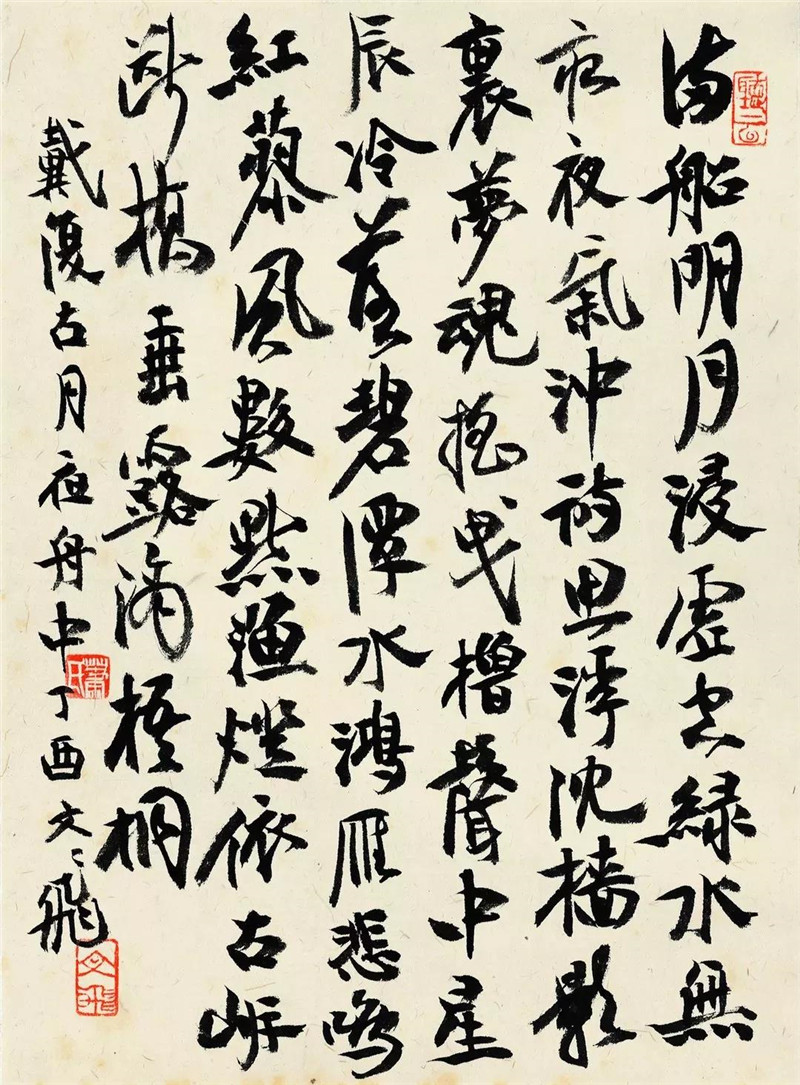 满船明月浸虛空綠水無
痕夜氣沖詩思浮沈檣影
裏夢魂搖曳櫓聲中星
辰冷落碧潭水鴻雁悲鳴
紅蓼風數點漁燈依古岸
斷橋垂露滴梧桐
戴復古月夜舟中丁酉文飛
蕭氏
文飛